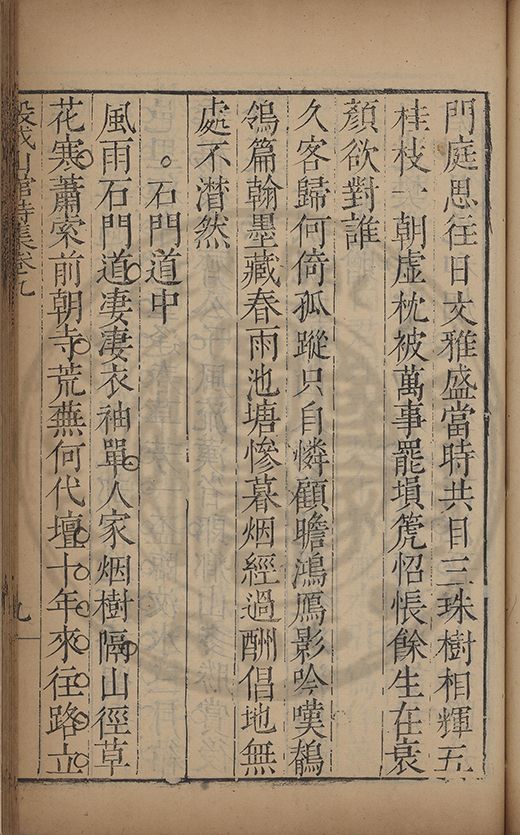 門庭思往日文雅盛當時共目三珠樹相輝五
桂枝一朝虛枕被萬事罷塤箎怊悵餘生在衰
顏欲對誰
久客歸何倚孤蹤只自憐顧瞻鴻鴈影吟嘆鶺
鴒篇翰墨藏春雨池塘慘暮烟經過酬倡地無
處不潸然
石門道中
風雨石門道淒淒衣袖單人家烟樹隔山徑草
花寒蕭索前朝寺荒蕪何代壇十年來往路立
山官詩集卷九
九